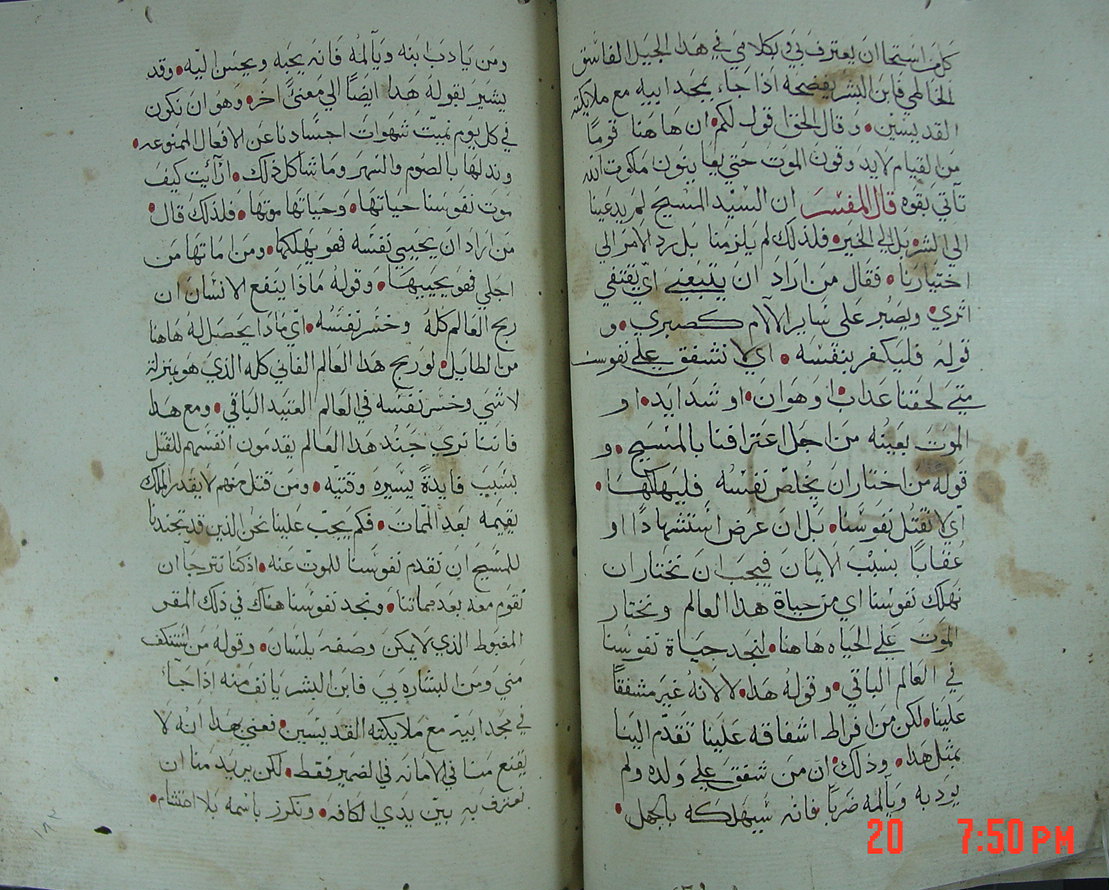 كل من استحا ان يعترف بي وبكلامي في هذا الجيل الفاسق
الخاطي فابن البشر يفضحه اذا جاء بمجد ابيه مع ملايكته
القديسين • وقال الحق اقول لكم ان هاهنا قوما
من القيام لا يدوقون الموت حتي يعاينون ملكوت الله
تاتي بقوه قال المفسر ان السيد المسيح لم يدعينا
الي الشر بل الي الخير • فلذلك لم يلزمنا بل رد الامر الي
اختيارنا • فقال من اراد ان يتبعني اي يقتفي
اثري • ويصبر علي ساير الالام كصبري • و
قوله فليكفر بنفسه • اي لا نشفق علي نفوسنا
متي لحقنا عداب او هوان • او شدايد • او
الموت بعينه من اجل اعترافنا بالمسيح • و
قوله من اختار ان يخلص نفسه فليهلكها •
اي لا نقتل نفوسنا • بل ان عرض استشهادا او
عقابا بسبب الايمان فيجب ان نختار ان
نهلك نفوسنا اي من حياة هذا العالم ونختار
الموت علي الحياه هاهنا • لنجد حياة نفوسنا
في العالم الباقي • وقوله هدا • لا لانه غير مشفقا
علينا • لكن من افراط اشفاقه علينا تقدم الينا
بمثل هدا • وذلك • ان من شفق علي ولده ولم
يودبه ويالمه ضربا فانه سيهلكه بالجهل •
ومن يادب ابنه ويالمه فانه يحبه ويحسن اليه • وقد
يشير بقوله هدا ايضا الي معني اخر • وهو ان نكون
في كل يوم نميت شهوات اجسادنا عن الافعال الممنوعه •
وندلها بالصوم والسهر وما شاكل ذلك • ارايت كيف
موت نفوسنا حياتها • وحياتها موتها • فلذلك قال •
من اراد ان يحيي نفسه فهو يهلكها • ومن اماتها من
اجلي فهو يحييها • وقوله مادا ينفع الانسان ان
ربح العالم كله وخسر نفسه • اي مادا يحصل له هاهنا
من الطايل • لو ربح هدا العالم الفاني كله الذي هو بمنزلة
لا شي وخسر نفسه في العالم العتيد الباقي • ومع هدا
فاننا نري جند هدا العالم يقدمون انفسهم للقتل
بسبب فايدة يسيره وقتيه • ومن قتل منهم لا يقدر الملك
يقيمه بعد الممات • فكم يجب علينا نحن الدين قد تجندنا
للمسيح ان نقدم نفوسنا للموت عنه • اذ كنا نترجا ان
نقوم معه بعد مماتنا • ونجد نفوسنا هناك في ذلك المقر
المغبوط الذي لا يمكن وصفه بلسان • وقوله من استنكف
مني ومن البشاره بي فابن البشر يانف منه اذا جا
في مجد ابيه مع ملايكته القديسين • فعني هدا انه لا
يقنع منا في الامانه في الضمير فقط • لكن يريد منا ان
نعترف به بين يدي الكافه • ونكرز باسمه بلا احتشام •
20 7:50 PM